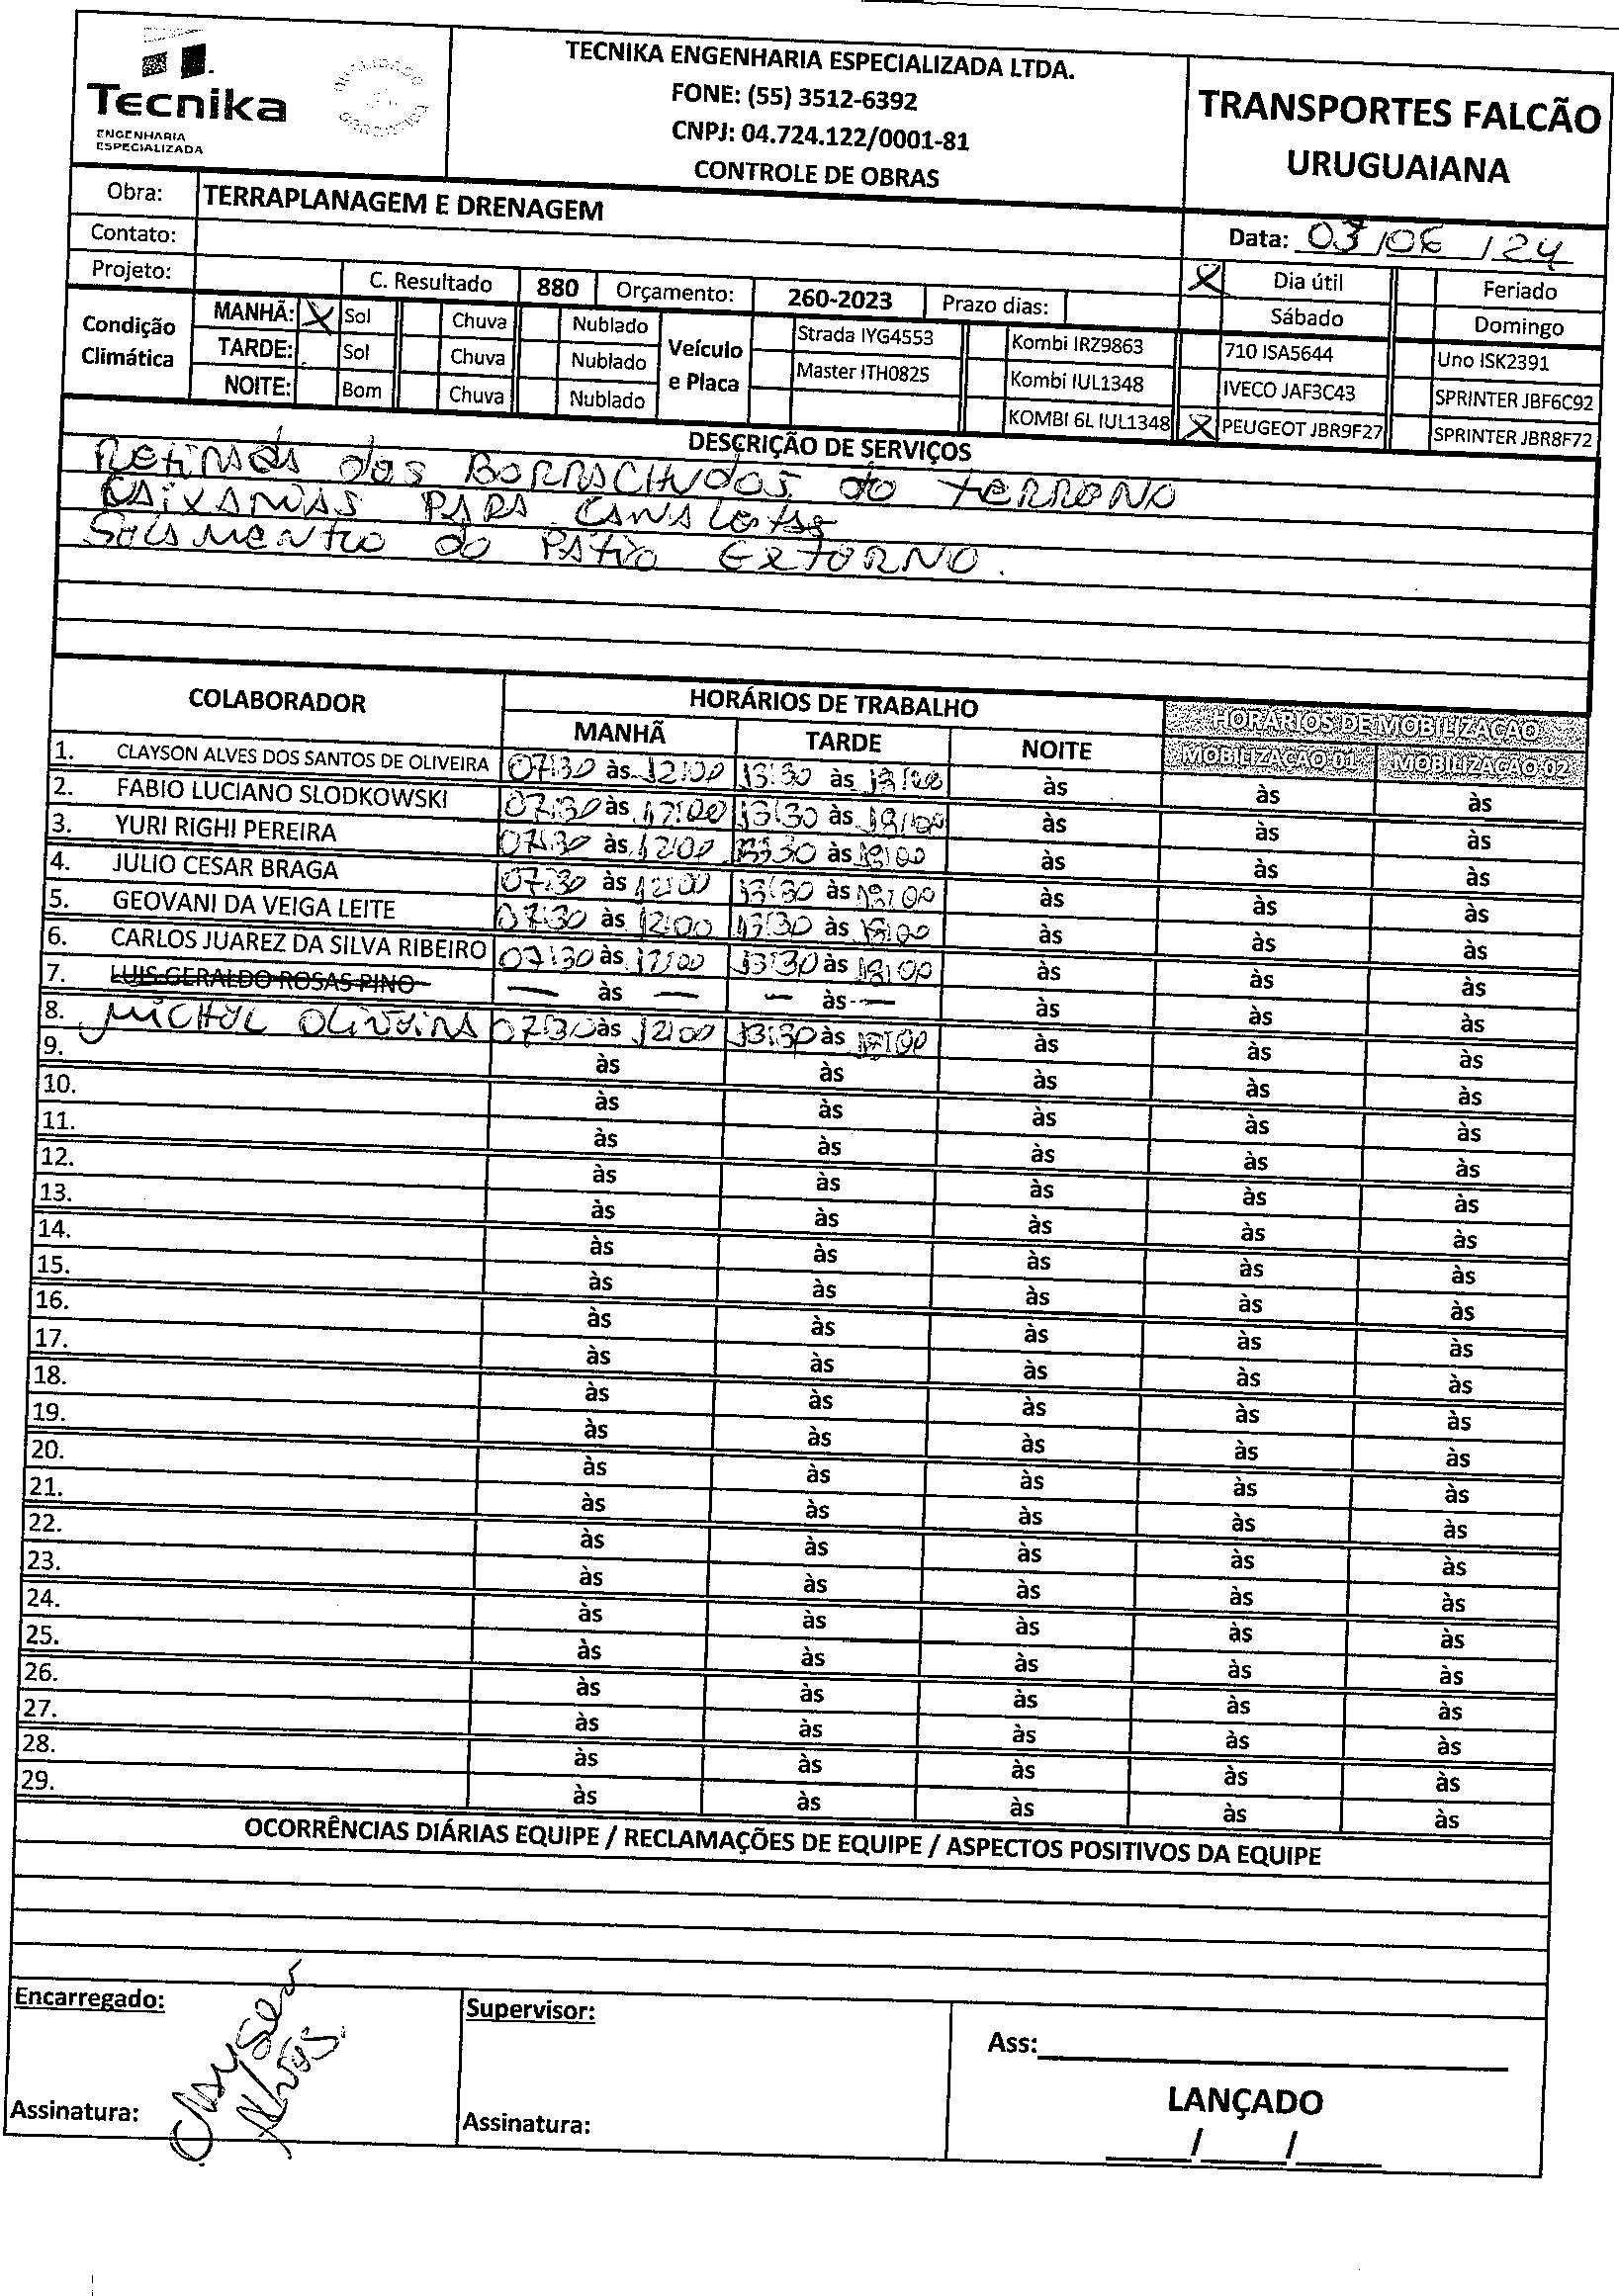 Tecnika
ENGENHARIA
ESPECIALIZADA
TECNIKA ENGENHARIA ESPECIALIZADA LTDA.
FONE: (55) 3512-6392
CNPJ: 04.724.122/0001-81
CONTROLE DE OBRAS
TRANSPORTES FALCÃO
URUGUAIANA
Obra: TERRAPLANAGEM E DRENAGEM
Contato:
Data: 03/06/24
Projeto: C. Resultado 880 Orçamento: 260-2023 Prazo dias:
X Dia útil Feriado
Sábado Domingo
Condição Climática
MANHÃ: X Sol Chuva Nublado
TARDE: Sol Chuva Nublado
NOITE: Bom Chuva Nublado
Veículo e Placa
Strada IYG4553 Kombi IRZ9863 710 ISA5644 Uno ISK2391
Master ITH0825 Kombi IUL1348 IVECO JAF3C43 SPRINTER JBF6C92
KOMBI 6L IUL1348 X PEUGEOT JBR9F27 SPRINTER JBR8F72
DESCRIÇÃO DE SERVIÇOS
dos do TERRENO
PARA
do PÁTIO EXTERNO.
COLABORADOR HORÁRIOS DE TRABALHO HORÁRIOS DE MOBILIZAÇÃO
MANHÃ TARDE NOITE MOBILIZAÇÃO 01 MOBILIZAÇÃO 02
1. CLAYSON ALVES DOS SANTOS DE OLIVEIRA 07:30 às 12:00 13:30 às às às às
2. FABIO LUCIANO SLODKOWSKI 07:30 às 12:00 13:30 às às às às
3. YURI RIGHI PEREIRA 07:30 às 12:00 13:30 às às às às
4. JULIO CESAR BRAGA 07:30 às 12:00 13:30 às às às às
5. GEOVANI DA VEIGA LEITE 07:30 às 12:00 13:30 às às às às
6. CARLOS JUAREZ DA SILVA RIBEIRO 07:30 às 12:00 13:30 às às às às
7. LUIS GERALDO ROSAS PINO — às — — às — às às às
8. OLIVEIRA 07:30 às 12:00 13:30 às às às às
9. às às às às às
10. às às às às às
11. às às às às às
12. às às às às às
13. às às às às às
14. às às às às às
15. às às às às às
16. às às às às às
17. às às às às às
18. às às às às às
19. às às às às às
20. às às às às às
21. às às às às às
22. às às às às às
23. às às às às às
24. às às às às às
25. às às às às às
26. às às às às às
27. às às às às às
28. às às às às às
29. às às às às às
OCORRÊNCIAS DIÁRIAS EQUIPE / RECLAMAÇÕES DE EQUIPE / ASPECTOS POSITIVOS DA EQUIPE
Encarregado: Supervisor:
Ass:
LANÇADO
Assinatura: Assinatura:
/ /